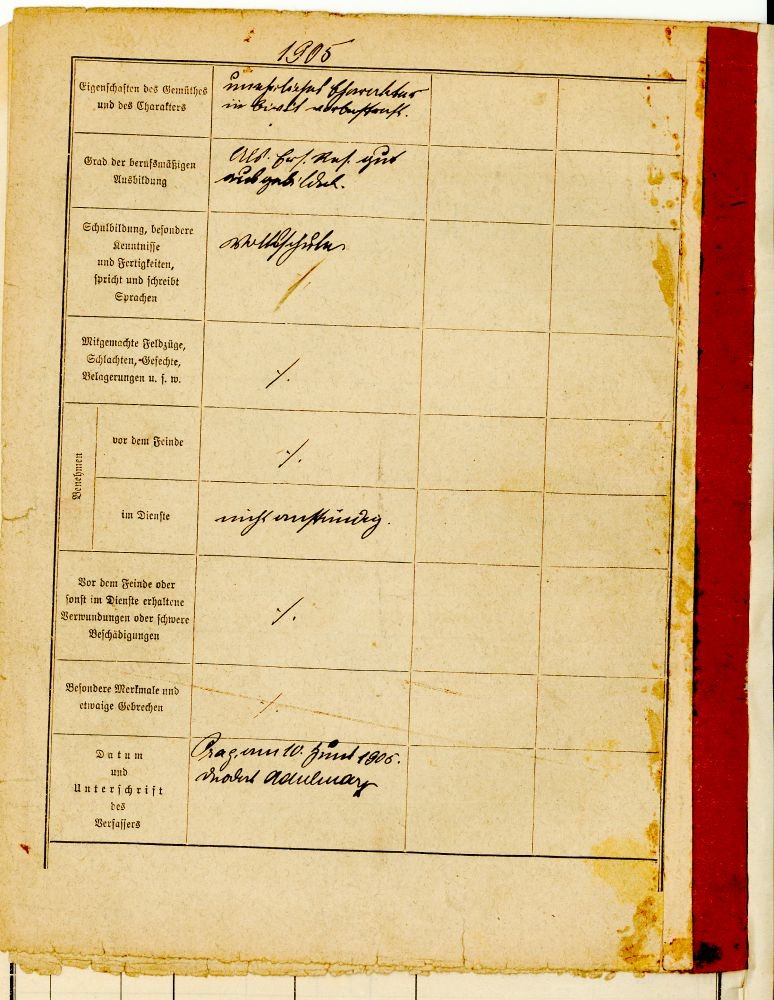 1905
Eigenschaften des Gemüthes
und des Charakters
Charakter
in Civil vorbestraft.
Grad der berufsmäßigen
Ausbildung
Als Ers. Res. gut
ausgebildet.
Schulbildung, besondere
Kenntnisse
und Fertigkeiten,
spricht und schreibt
Sprachen
Volksschule
/
Mitgemachte Feldzüge,
Schlachten, Gefechte,
Belagerungen u. s. w.
./.
Benehmen
vor dem Feinde
./.
im Dienste
nicht anständig.
Vor dem Feinde oder
sonst im Dienste erhaltene
Verwundungen oder schwere
Beschädigungen
./.
Besondere Merkmale und
etwaige Gebrechen
./.
Datum
und
Unterschrift
des
Verfassers
Prag, am 10. Juni 1905.